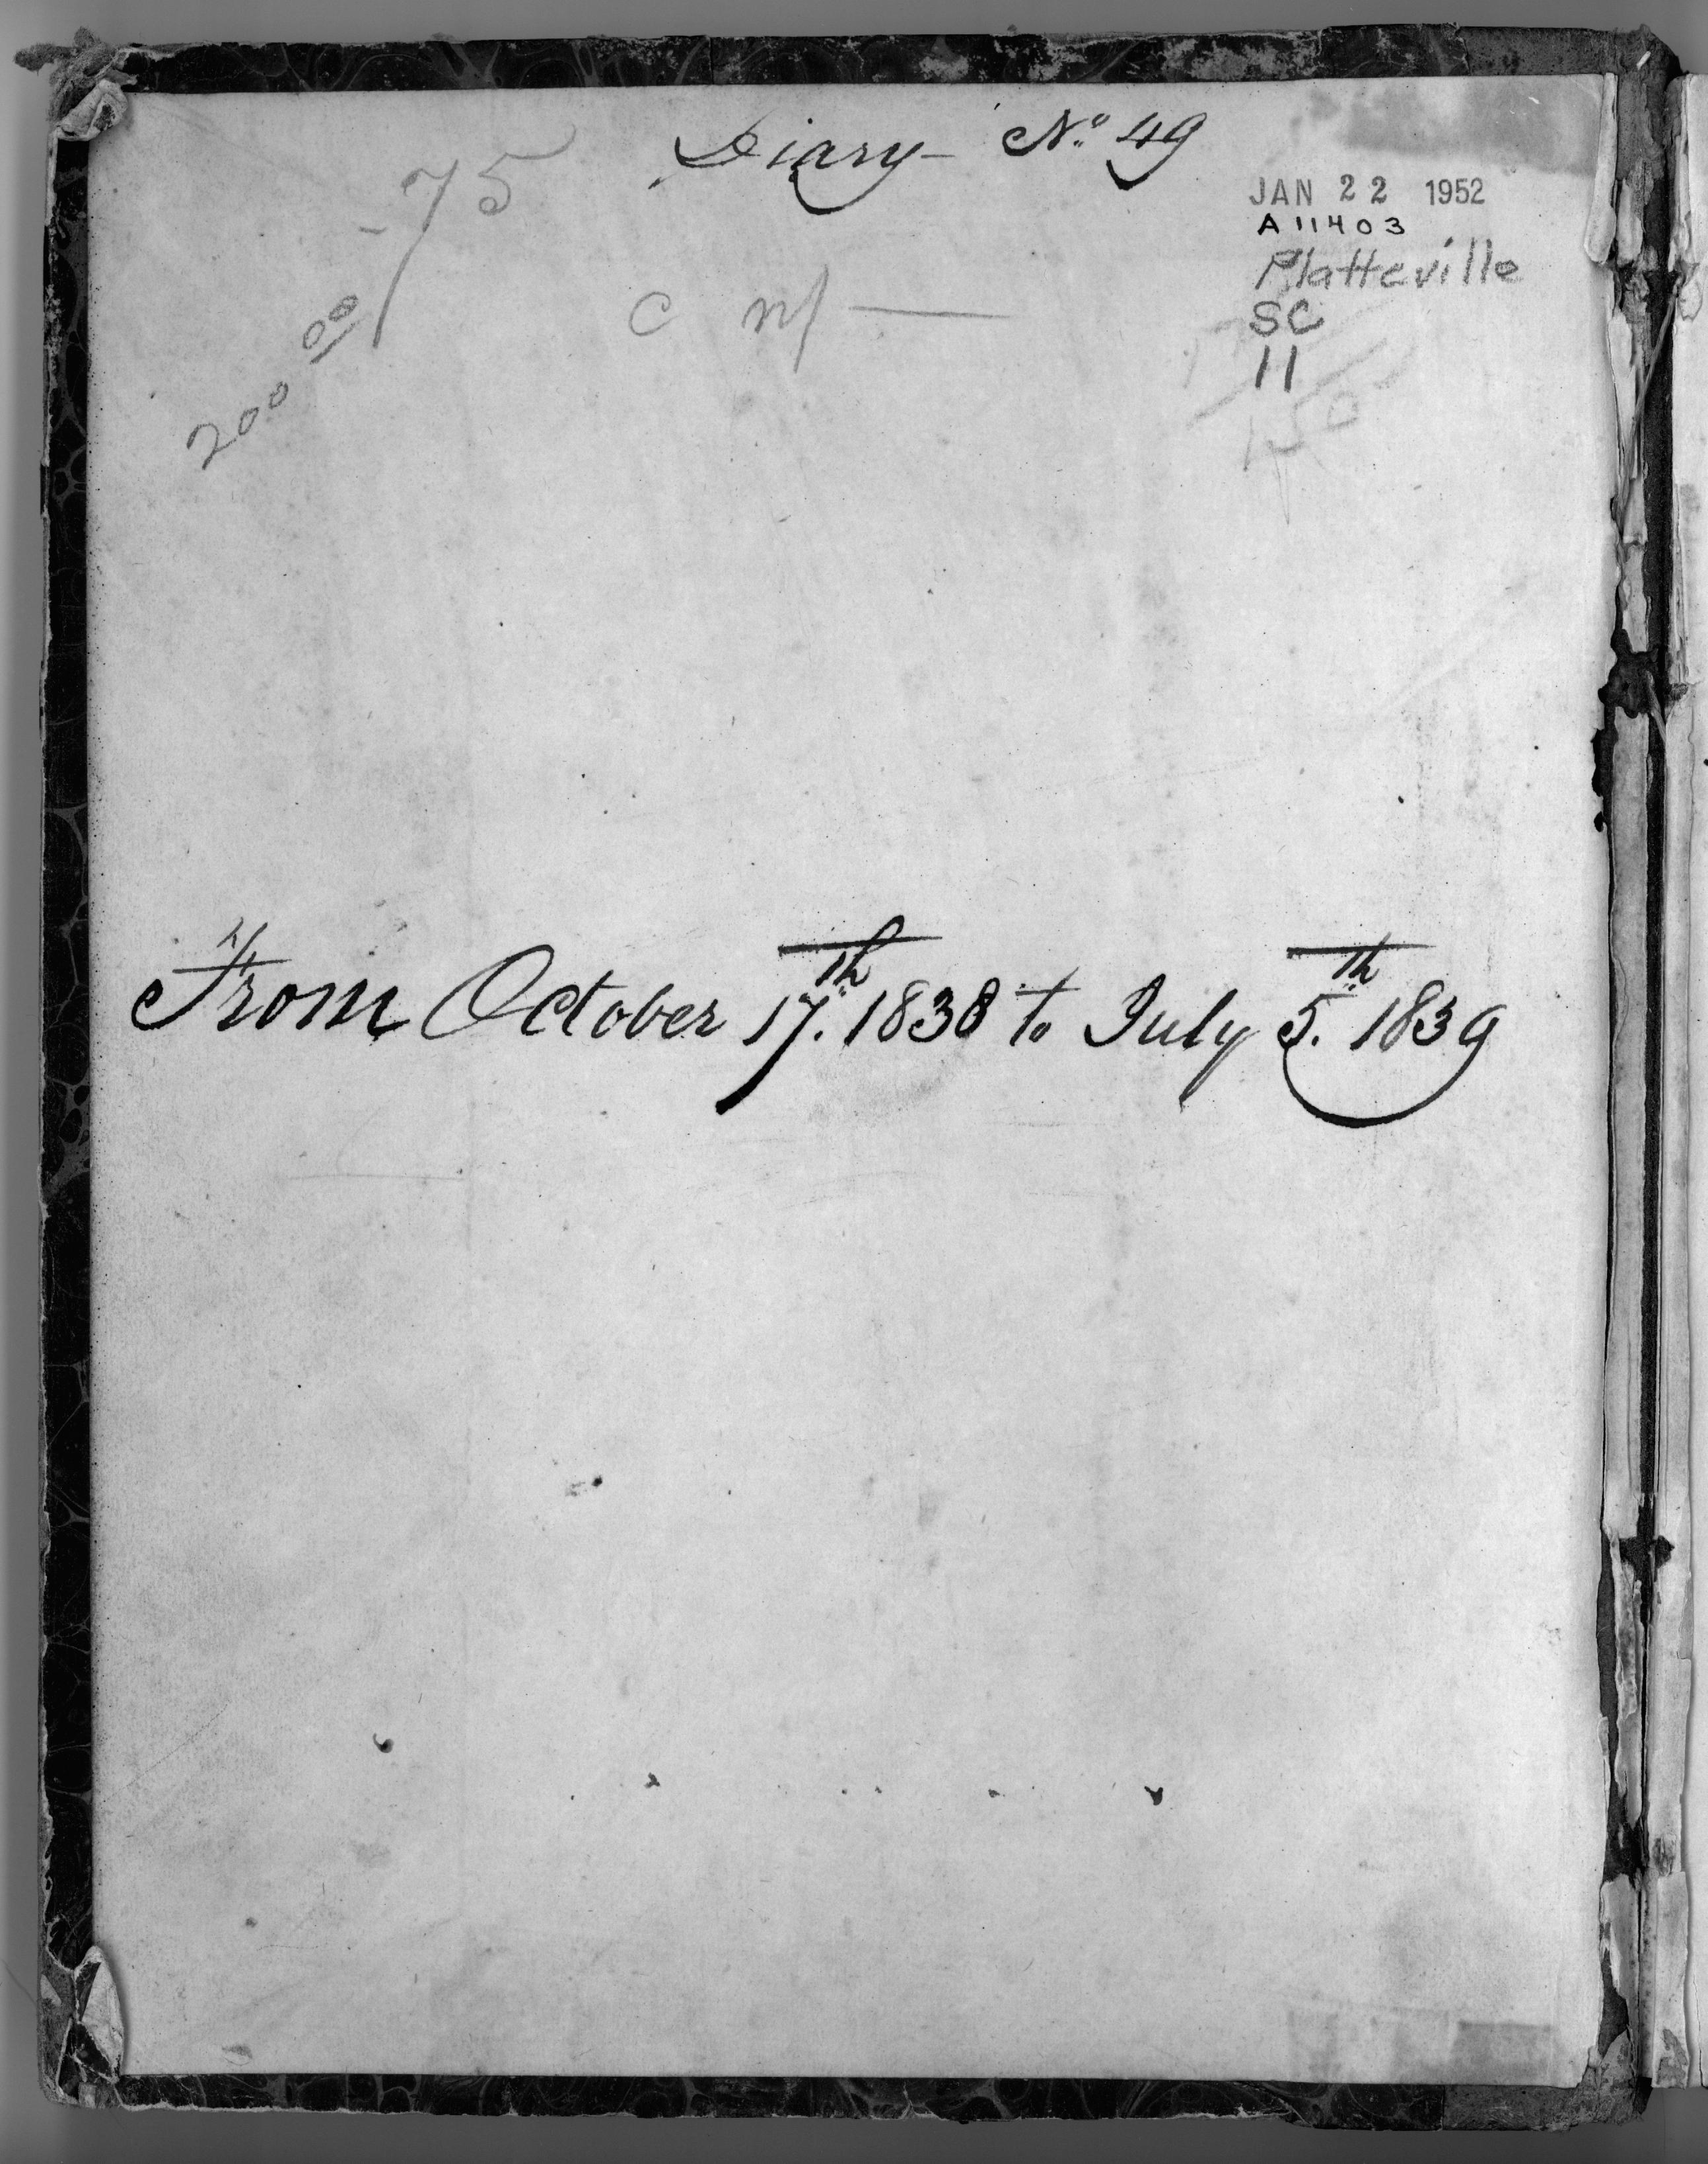 Diary - No. 49
75
JAN 22 1952
A 11403
Platteville
SC
11
20000
c
150
From October 17th. 1838 to July 5th. 1839